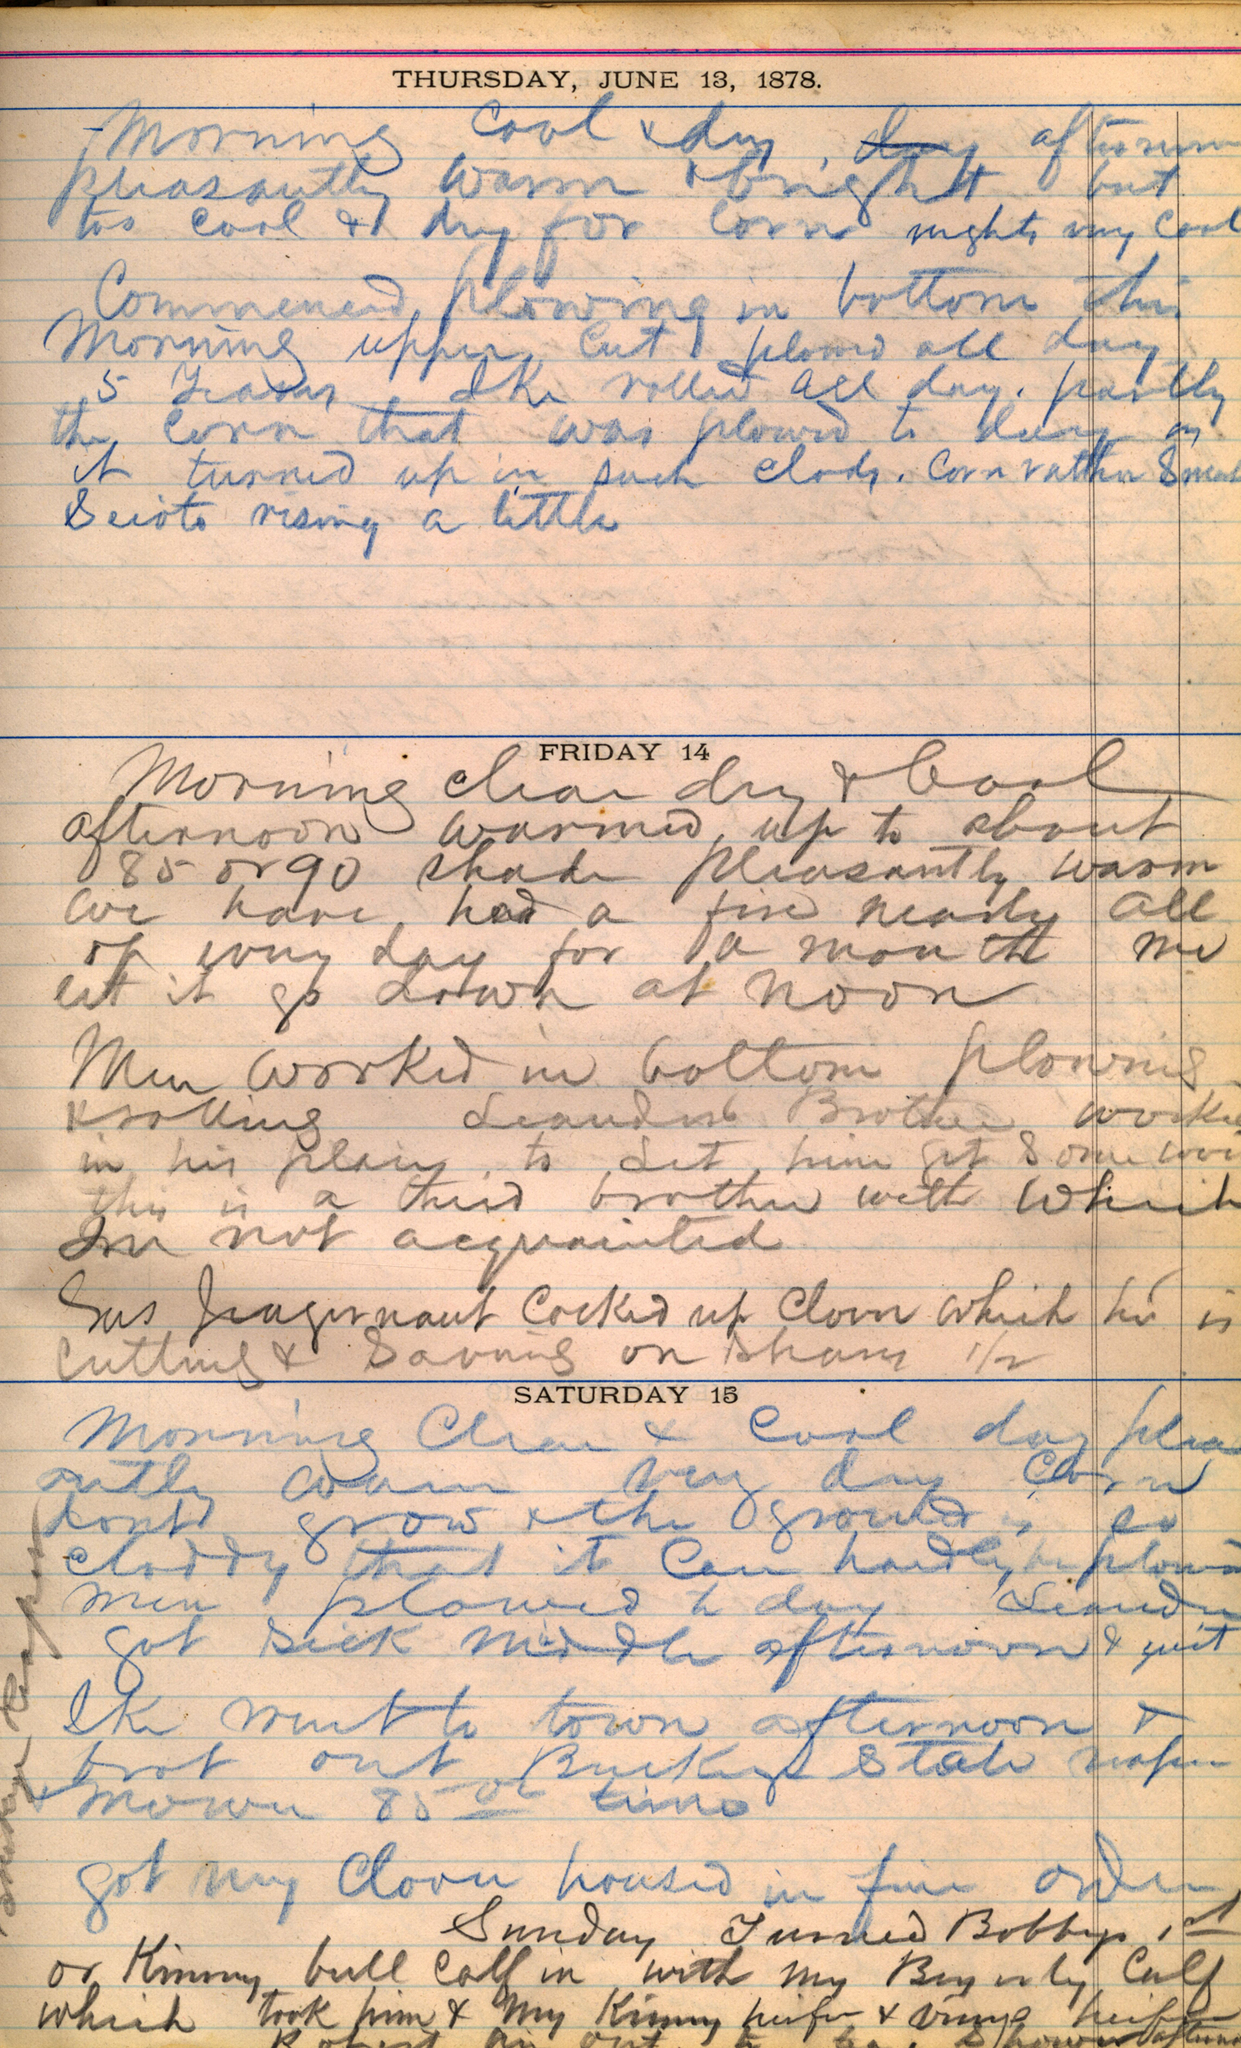 THURSDAY, JUNE 13, 1878.
Morning Cool & dry, day afternoon
pleasantly warm & bright but
too cool & dry for corn nights very Cool
Commenced plowing in bottom this
Morning upper Cut plowed all day
5 Teams Ike rolled all day. partly
the Corn that was plowed to day as
it turned up in such clods. Corn rather Small
Scioto rising a little
FRIDAY 14
Morning clear dry & Cool
afternoon warmed up to about
85 or 90 shade pleasantly warm
We have had a fire nearly all
of every day for a month we
let it go down at noon
Men worked in bottom plowing
& rolling Leanders Brother worked
in his place to let him get some
this is a third brother with which
Im not acquainted
Gus Jragernaut Cocked up Clover which he is
Cutting & Saving on Shares 1/2
SATURDAY 15
Morning Clear & Cool day pleas
antly warm very dry Corn
dont grow & the ground is so
cloddy that it Can hardly be plowed
men plowed to day Leander
got sick middle afternoon & quit
Ike went to town afternoon &
brot out Buckeye State reaper
& Mower 85 on time
got my Clover housed in fine order
Sunday Turned Bobbys 1st
or Kinney bull Calf in with my Calf
which took him & My Kinney heifer & heifer
Robert out to afternoon